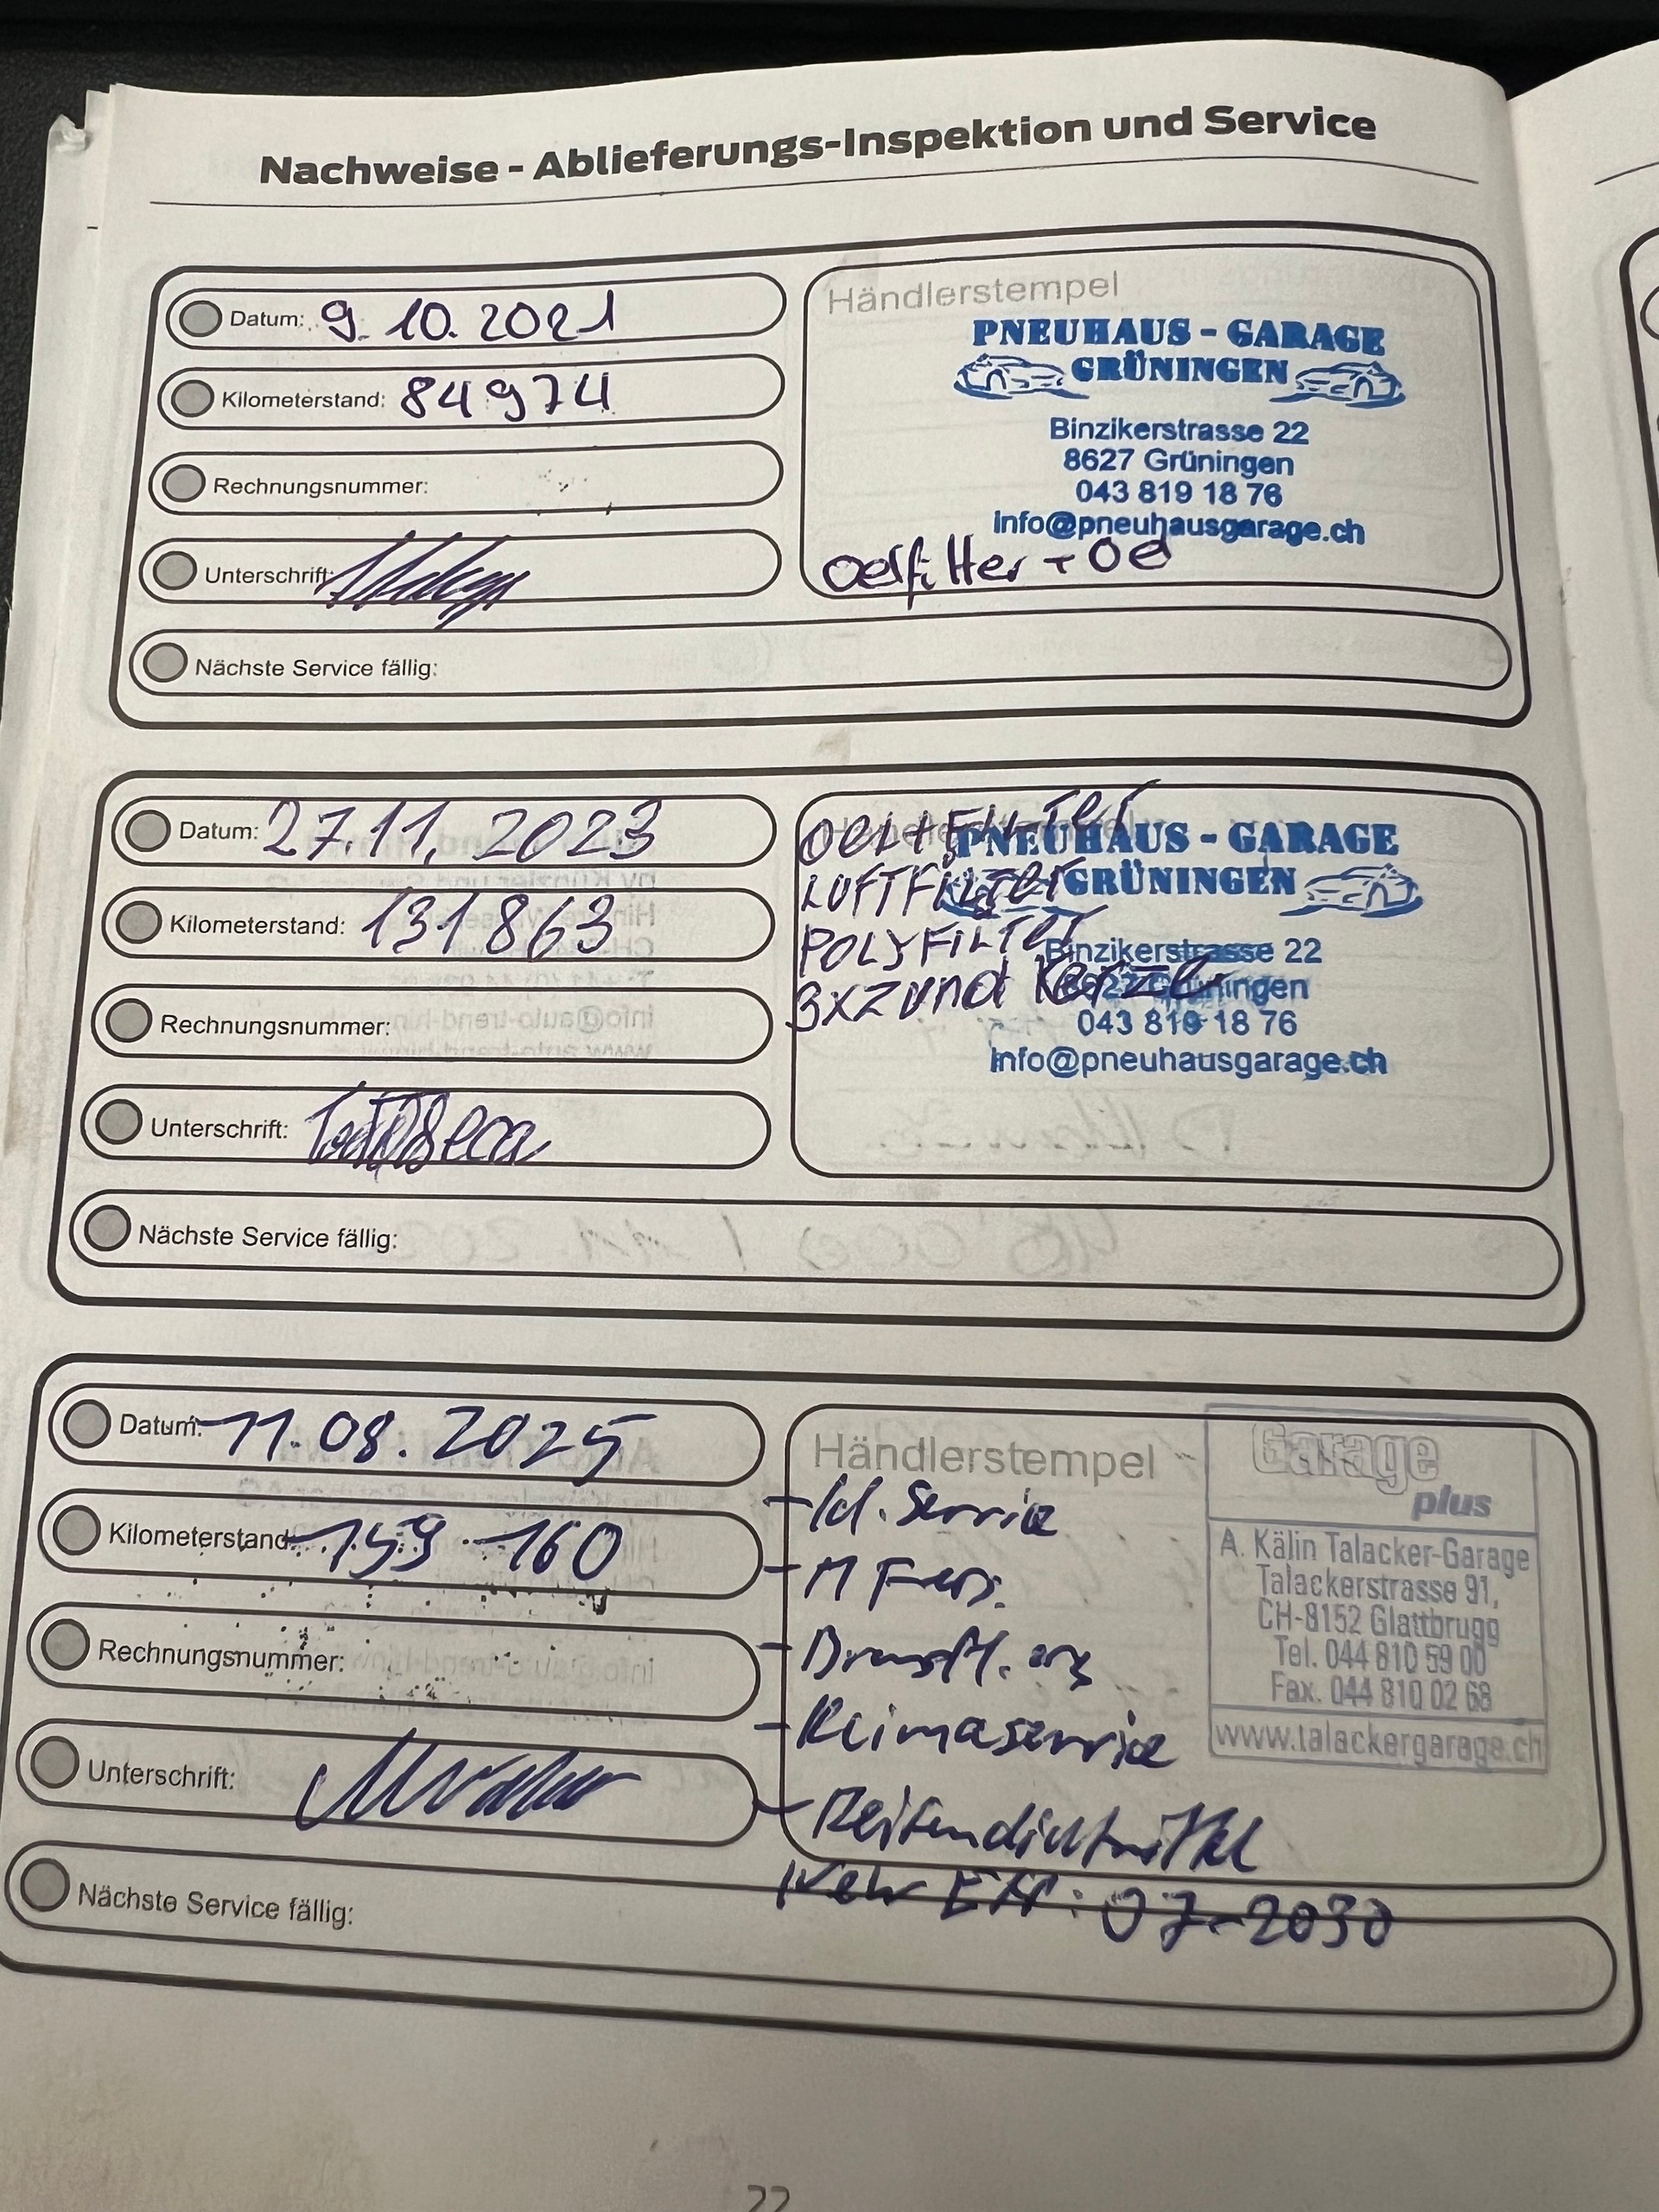 Nachweise - Ablieferungs-Inspektion und Service
Datum: 9.10.2021
Kilometerstand: 84974
Rechnungsnummer:
Unterschrift:
Händlerstempel
PNEUHAUS - GARAGE
GRÜNINGEN
Binzikerstrasse 22
8627 Grüningen
043 819 18 76
info@pneuhausgarage.ch
Oelfilter + Oel
Nächste Service fällig:
Datum: 27.11.2023
Kilometerstand: 131863
Rechnungsnummer:
Unterschrift:
OEL+FILTER
LUFTFILTER
POLYFILTER
3xZünd Kerze
PNEUHAUS - GARAGE
GRÜNINGEN
Binzikerstrasse 22
8627 Grüningen
043 819 18 76
info@pneuhausgarage.ch
Nächste Service fällig:
Datum: 11.08.2025
Kilometerstand: 159 160
Rechnungsnummer:
Unterschrift:
Händlerstempel
- kl. Service
- Klimaservice
- Reifendichtmittel
Neu EXP: 07-2030
Garage
plus
A. Kälin Talacker-Garage
Talackerstrasse 91,
CH-8152 Glattbrugg
Tel. 044 810 59 00
Fax. 044 810 02 68
www.talackergarage.ch
Nächste Service fällig:
22